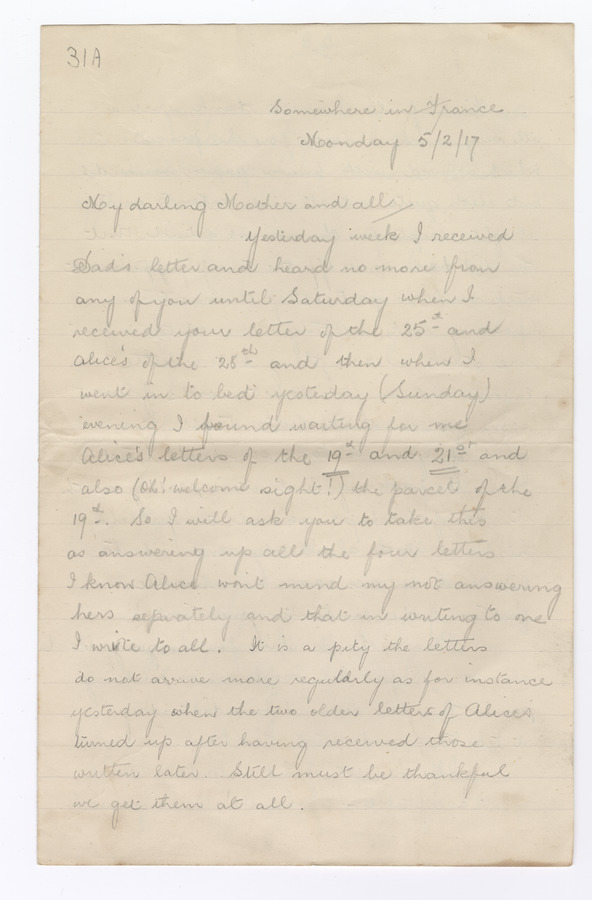 31A
Somewhere in France
Monday 5/2/17
My darling Mother and all,
Yesterday week I received
Dad's letter and heard no more from
any of you until Saturday when I
received your letter of the 25th and
Alice's of the 28th and then when I
went in to bed yesterday (Sunday)
evening I found waiting for me
Alice's letters of the 19th and 21st and
also (Oh! welcome sight!) the parcel of the
19th. So I will ask you to take this
as answering up all the four letters
I know Alice wont mind my not answering
hers separately and that in writing to one
I write to all. It is a pity the letters
do not arrive more regularly as for instance
yesterday when the two older letters of Alices
turned up after having received those
written later. Still must be thankful
we get them at all.